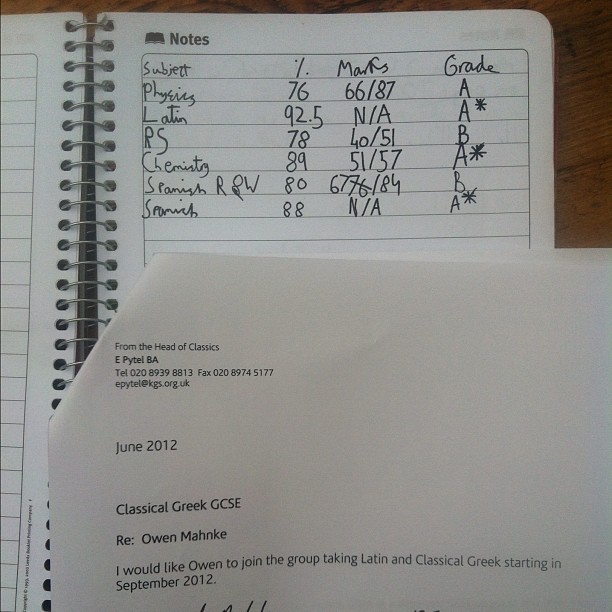 Notes
Subject % Marks Grade
Physics 76 66/87 A
Latin 92.5 N/A A*
RS 78 40/51 B
Chemistry 89 51/57 A*
Spanish R&W 80 67/84 B
Spanish 88 N/A A*
From the Head of Classics
E Pytel BA
Tel 020 8939 8813 Fax 020 8974 5177
epytel@kgs.org.uk
June 2012
Classical Greek GCSE
Re: Owen Mahnke
I would like Owen to join the group taking Latin and Classical Greek starting in
September 2012.